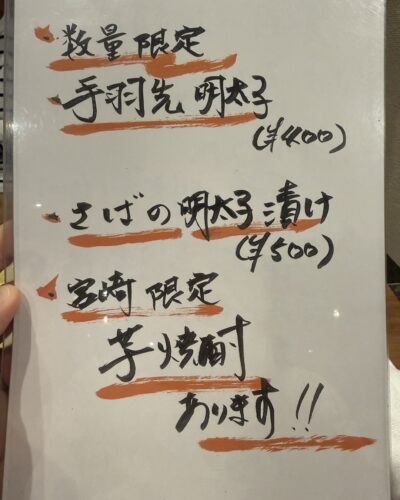 数量限定
手羽先明太子
(¥400)
さばの明太子漬け
(¥500)
宮崎限定
芋焼酎
あります!!